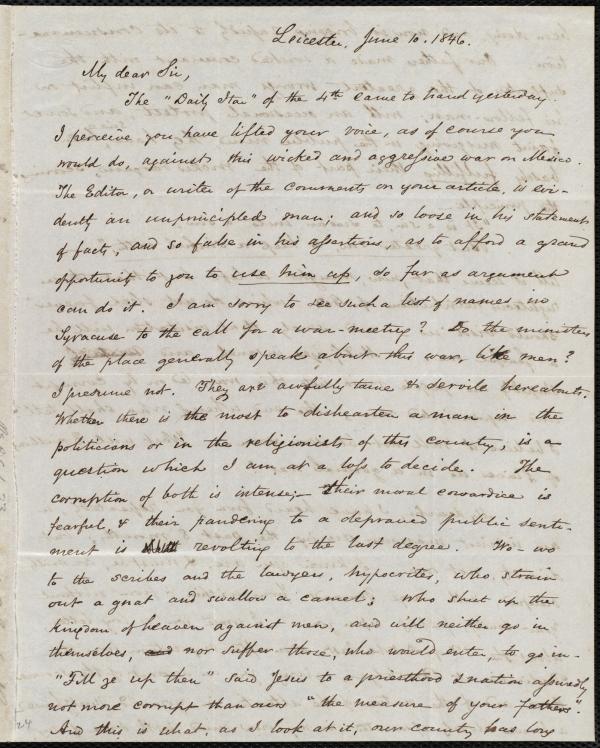 Leicester, June 10. 1846.
My dear Sir,
The "Daily Star" of the 4th came to hand yesterday.
I perceive you have lifted your voice, as of course you
would do, against this wicked and aggressive war on Mexico.
The Editor, or writer of the comments on your article, is evi-
dently an unprincipled man; and so loose in his statements
of facts, and so false in his assertions, as to afford a grand
opportunity to you to use him up, so far as argument
can do it. I am sorry to see such a list of names in
Syracuse to the call for a war-meeting? Do the ministers
of the place generally speak about this war, like men?
I presume not. They are awfully tame & servile hereabouts.
Whether there is the most to dishearten a man in the
politicians or in the religionists of this country, is a
question which I am at a loss to decide. The
corruption of both is intense; their moral cowardice is
fearful, & their pandering to a depraved public senti-
ment is revolting to the last degree. Wo- wo
to the scribes and the lawyers, hypocrites, who strain
out a gnat and swallow a camel; who shut up the
kingdom of heaven against men, and will neither go in
themselves, and nor suffer those, who would enter, to go in-
"Fill ye up then" said Jesus to a priesthood & nation assuredly
not more corrupt than ours "the measure of your fathers".
And this is what, as I look at it, our country has long
24